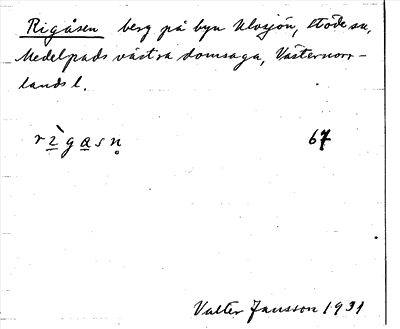 Rigåsen berg på byn Ulvsjön, Stöde sn,
Medelpads västra domsaga, Västernorr-
lands l.
rìgasn̥ 67
Valter Jansson 1931